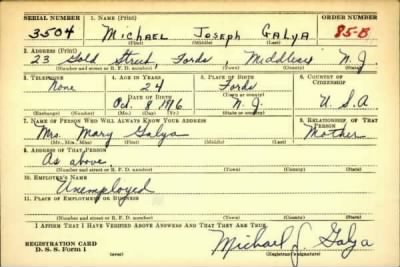 SERIAL NUMBER 1. NAME (Print) ORDER NUMBER
3504 MICHAEL JOSEPH GALYA 85-B
(First) (Middle) (Last)
2. ADDRESS (Print)
23 Gold Street, Fords, Middlesex N.J.
(Number and street or R. F. D. number) (Town) (County) (State)
3. TELEPHONE 4. AGE IN YEARS 5. PLACE OF BIRTH 6. COUNTRY OF CITIZENSHIP
None 24 Fords
DATE OF BIRTH (Town or county)
Oct. 8 1916 N.J. U.S.A
(Exchange) (Number) (Mo.) (Day) (Yr.) (State or country)
7. NAME OF PERSON WHO WILL ALWAYS KNOW YOUR ADDRESS 8. RELATIONSHIP OF THAT PERSON
Mrs. Mary Galya Mother
(Mr., Mrs., Miss) (First) (Middle) (Last)
9. ADDRESS OF THAT PERSON
As above
(Number and street or R. F. D. number) (Town) (County) (State)
10. EMPLOYER'S NAME
Unemployed
11. PLACE OF EMPLOYMENT OR BUSINESS
(Number and street or R. F. D. number) (Town) (County) (State)
I AFFIRM THAT I HAVE VERIFIED ABOVE ANSWERS AND THAT THEY ARE TRUE.
REGISTRATION CARD
D. S. S. Form 1 (over) Michael J. Galya
(Registrant's signature)